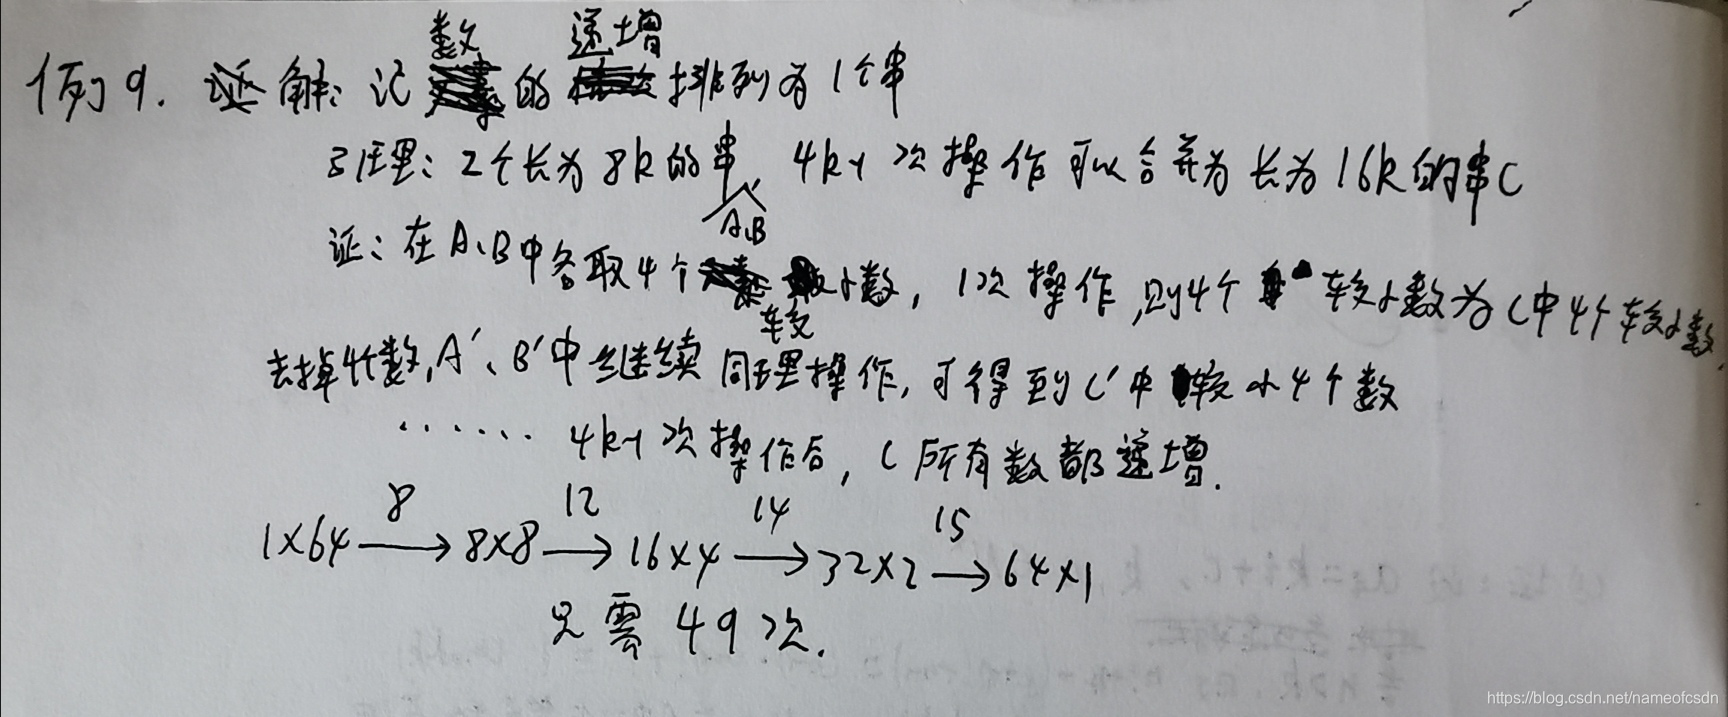 例9. 解: 记数的递增排列为1个串
引理: 2个长为8k的串A、B, 4k-1次操作可以合并为长为16k的串C
证: 在A、B中各取4个较小数, 1次操作, 则4个较小数为C中4个较小数
去掉4个数, A'、B'中继续同理操作, 可得到C'中较小4个数
...... 4k-1次操作后, C所有数都递增.
8 12 14 15
1×64 → 8×8 → 16×4 → 32×2 → 64×1
只需 49次.
https://blog.csdn.net/nameofcsdn